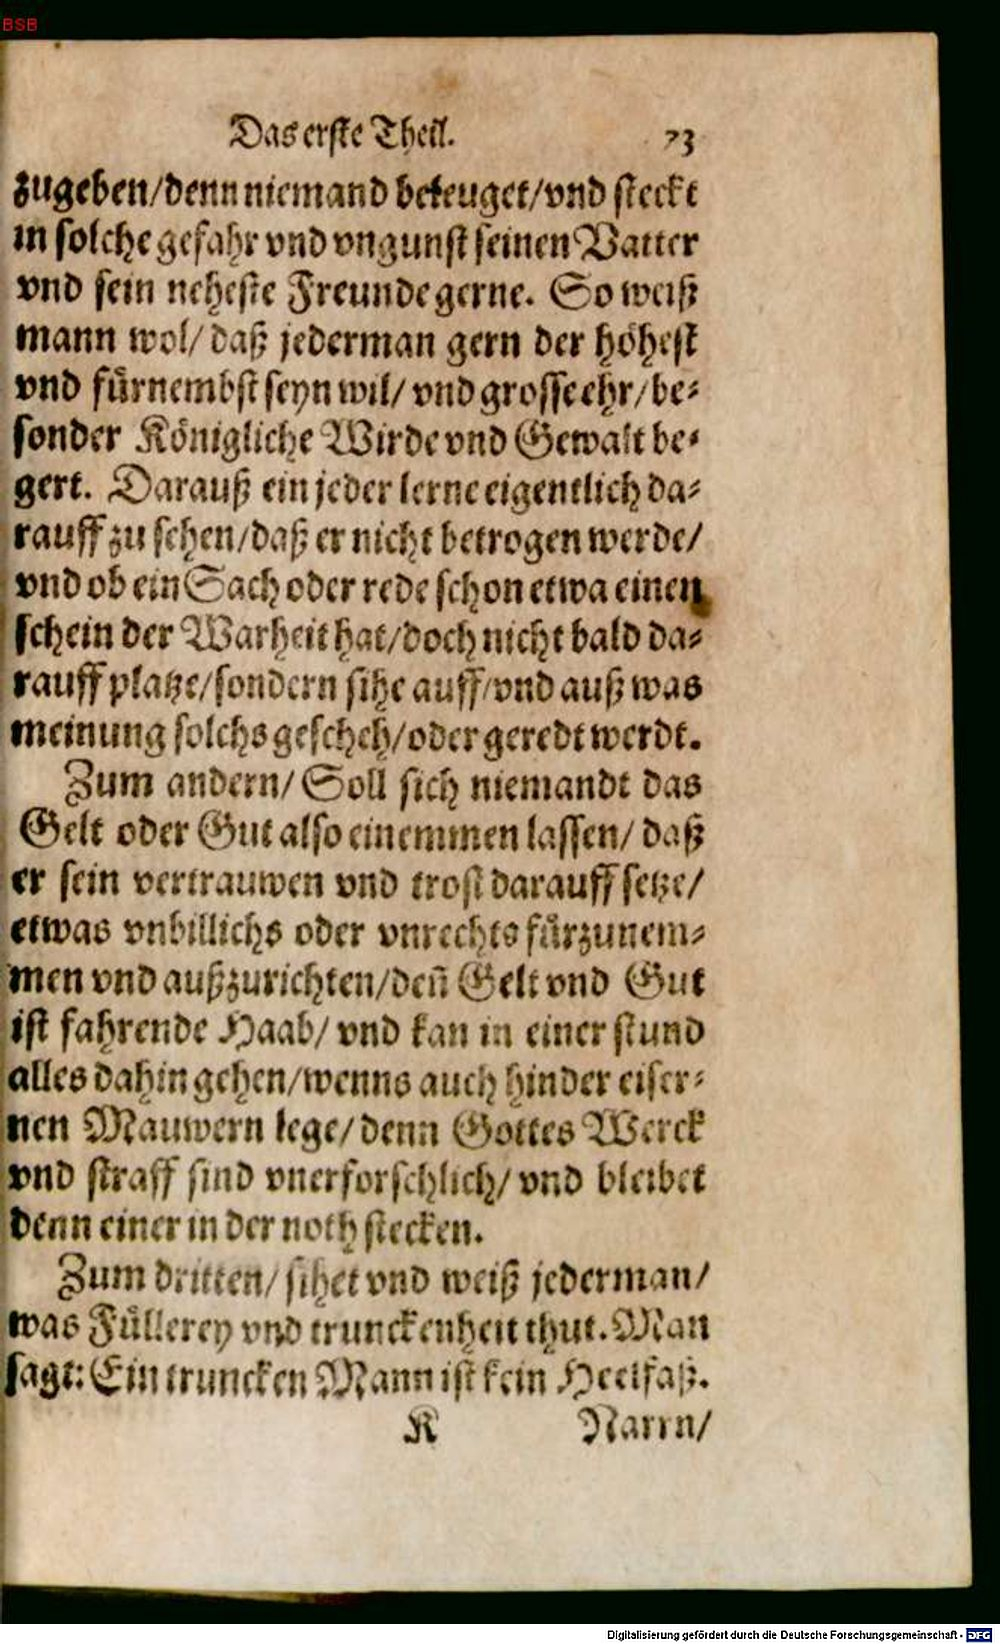 BSB
Das erste Theil. 73
zugeben/denn niemand beteuget/vnd steckt
in solche gefahr vnd vngunst seinen Vatter
vnd sein neheste Freunde gerne. So weiß
mann wol/ daß jederman gern der höhest
vnd fürnembst seyn wil/ vnd grosse ehr/be-
sonder Königliche Wirde vnd Gewalt be-
gert. Darauß ein jeder lerne eigentlich da-
rauff zu sehen/daß er nicht betrogen werde/
vnd ob ein Sach oder rede schon etwa einen
schein der Warheit hat/doch nicht bald da-
rauff platze/sondern sihe auff/vnd auß was
meinung solchs gescheh/oder geredt werdt.
Zum andern/ Soll sich niemandt das
Gelt oder Gut also einemmen lassen/ daß
er sein vertrauwen vnd trost darauff setze/
etwas vnbillichs oder vnrechts fürzunem-
men vnd außzurichten/deñ Gelt vnd Gut
ist fahrende Haab/ vnd kan in einer stund
alles dahin gehen/wenns auch hinder eiser-
nen Mauwern lege/denn Gottes Werck
vnd straff sind vnerforschlich/ vnd bleibet
denn einer in der noth stecken.
Zum dritten/ sihet vnd weiß jederman/
was Füllerey vnd trunckenheit thut. Man
sagt: Ein truncken Mann ist kein Heelfaß.
K Narrn/
Digitalisierung gefördert durch die Deutsche Forschungsgemeinschaft - DFG